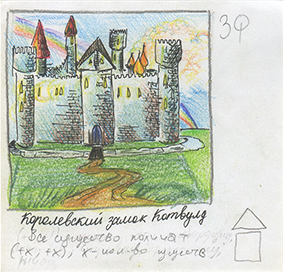 3Ф
Королевский замок Котвулд
Все существо получат
(+x; +x), x - кол-во существ